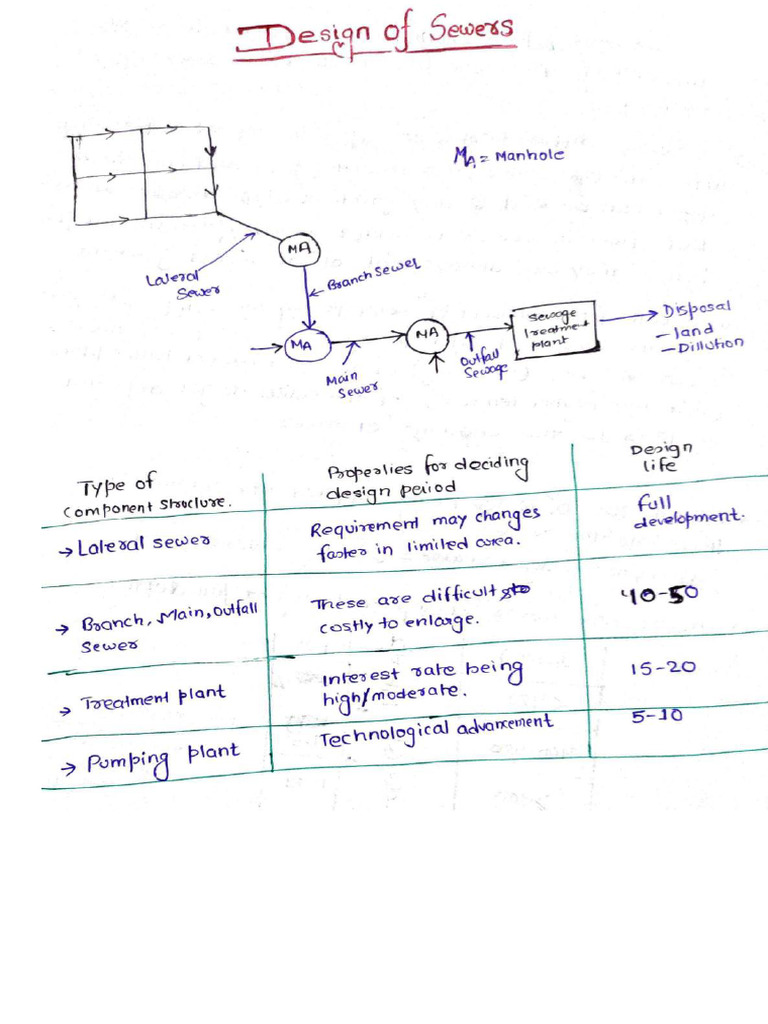 Design of Sewers
MA = Manhole
MA
Lateral
Sewer
Branch Sewer
MA
MA
Main
Sewer
Outfall
Sewage
Sewage
treatment
plant
Disposal
- land
- Dillution
Type of
component structure.
Properties for deciding
design period
Design
life
→ Lateral sewer
Requirement may changes
faster in limited area.
full
development.
→ Branch, Main, Outfall
Sewer
These are difficult
costly to enlarge.
40-50
→ Treatment plant
Interest rate being
high/moderate.
15-20
→ Pumping plant
Technological advancement
5-10